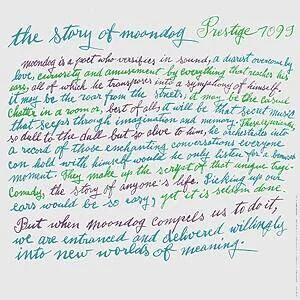 the story of moondog Prestige 7099
moondog is a poet who versifies in sound, a diarist overcome by
love, curiosity and amusement by everything that reaches his
ears, all of which he transposes into a symphony of himself.
it may be the roar from the streets, it may be the casual
chatter in a room or, best of all, it will be that secret music
that seeps through imagination and memory. These experiences,
so dull to the dull but so alive to him, he orchestrates into
a record of those enchanting conversations everyone
can hold with himself would he only listen for a
moment. They make up the script of that unique Comedy,
the story of anyone's life. Picking our
ears would be so easy, yet it is seldom done.
But when moondog compels us to do it,
we are entranced and delivered willingly
into new worlds of meaning.